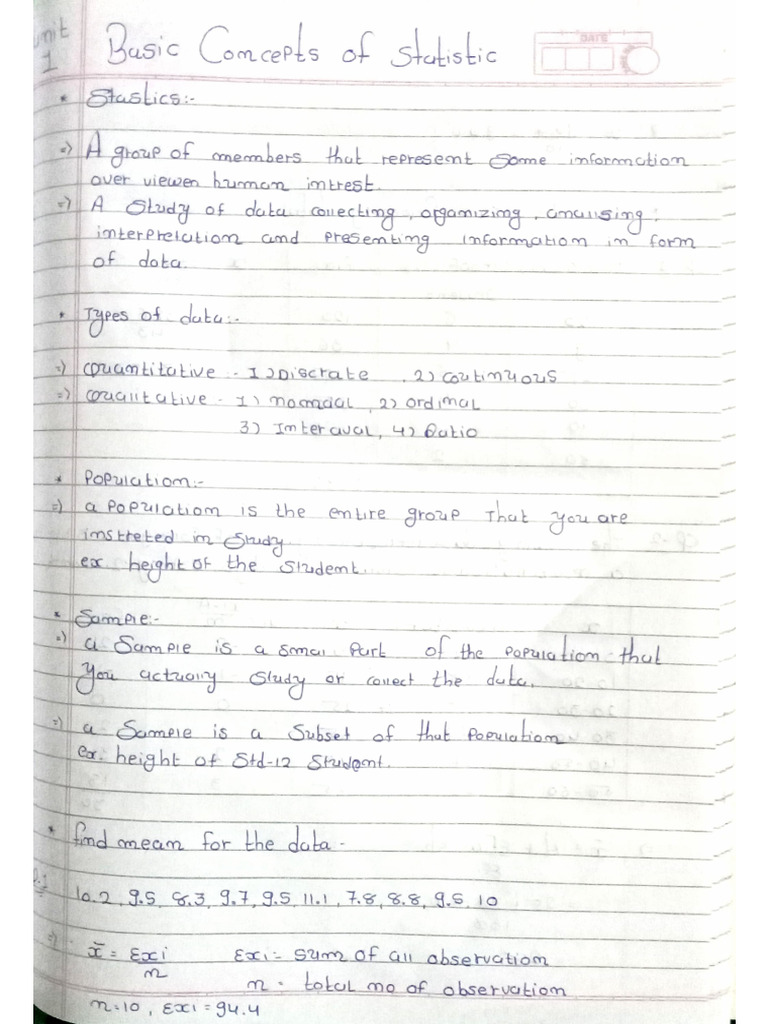 unit
1
Basic Concepts of Statistic
DATE
* Stastics:-
=> A group of members that represent some information
over viewen human intrest.
=> A study of data collecting, organizing, analising,
interpretation and presenting information in form
of data.
* Types of data:-
=> Quantitative - 1) Discrate , 2) continuous
=> Qualitative - 1) nomadal, 2) ordinal
3) Interaval, 4) Ratio
* Population:-
=> a population is the entire group that you are
instreted in study.
ex. height of the student.
* Sample:-
=> a sample is a smal part of the population that
you actually study or collect the data.
=> a sample is a subset of that population
ex. height of std-12 student.
* find mean for the data -
Q.1
10.2, 9.5, 8.3, 9.7, 9.5, 11.1, 7.8, 8.8, 9.5, 10
=> x̄ = Σxi/n Σxi = sum of all observation
n - total no of observation
n=10, Σxi = 94.4